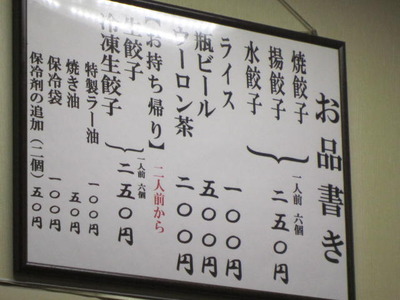 お品書き
焼餃子
揚餃子
水餃子
一人前 六個
二五〇円
ライス 一〇〇円
瓶ビール 五〇〇円
ウーロン茶 二〇〇円
【お持ち帰り】二人前から
生餃子
冷凍生餃子
一人前 六個
二五〇円
特製ラー油 一〇〇円
焼き油 五〇円
保冷袋 一〇〇円
保冷剤の追加(二個) 五〇円